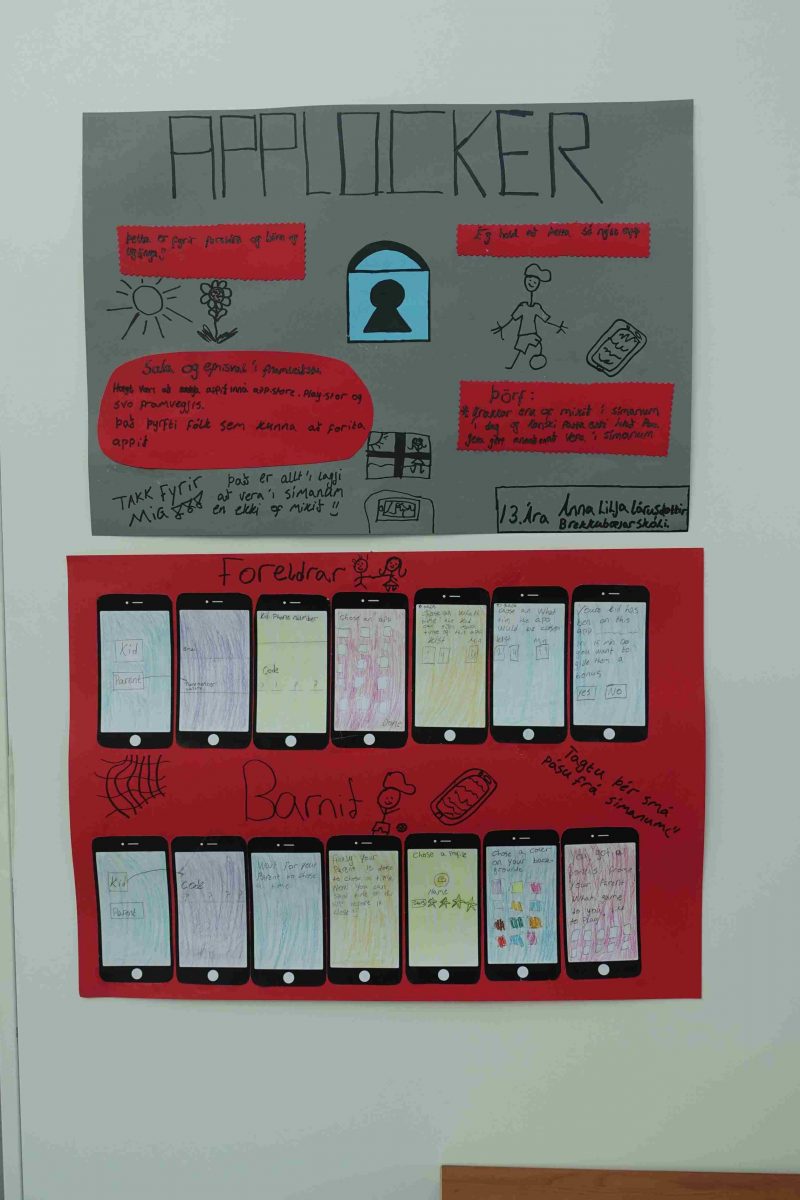 APPLOCKER
Þetta er fyrir foreldra og börn og
unglinga!
Ég held að þetta sé nýtt app
Sala og efnisval í framleiðslu
Hægt væri að appið inná app store, Play stor og
svo framvegjrs.
það þyrfti fólk sem kunna að forita
appið
Þörf:
krakkar eru of mikið í símanum
í dag og kanski
vera í símanum
TAKK FYRIR
MIG
það er allt í lagji
að vera í símanum
en ekki of mikið !!
13. Ára Anna Lilja Lárusdóttir
Brekkubæjarskóli.
Foreldrar
Kid
Parent
Kid Phone number
Code
? ? ? ?
Chose an app
Done
Back
time of this app
Min
Chose an What
tim the app
Would be closed
Min
Youre kid has
ben on this
app
15 min Do
you want to
give them a
bonus
Yes No
Taktu þér smá
pásu frá símanum!!
Barnið
Kid
Parent
Code
? ? ? ?
Wait for your
Parent to chose
a time
Parent is done
to chose a time
Now you can
Name
Chose a coler
on your back-
You got a
bonus from
your Parent
What game
do you
to Play